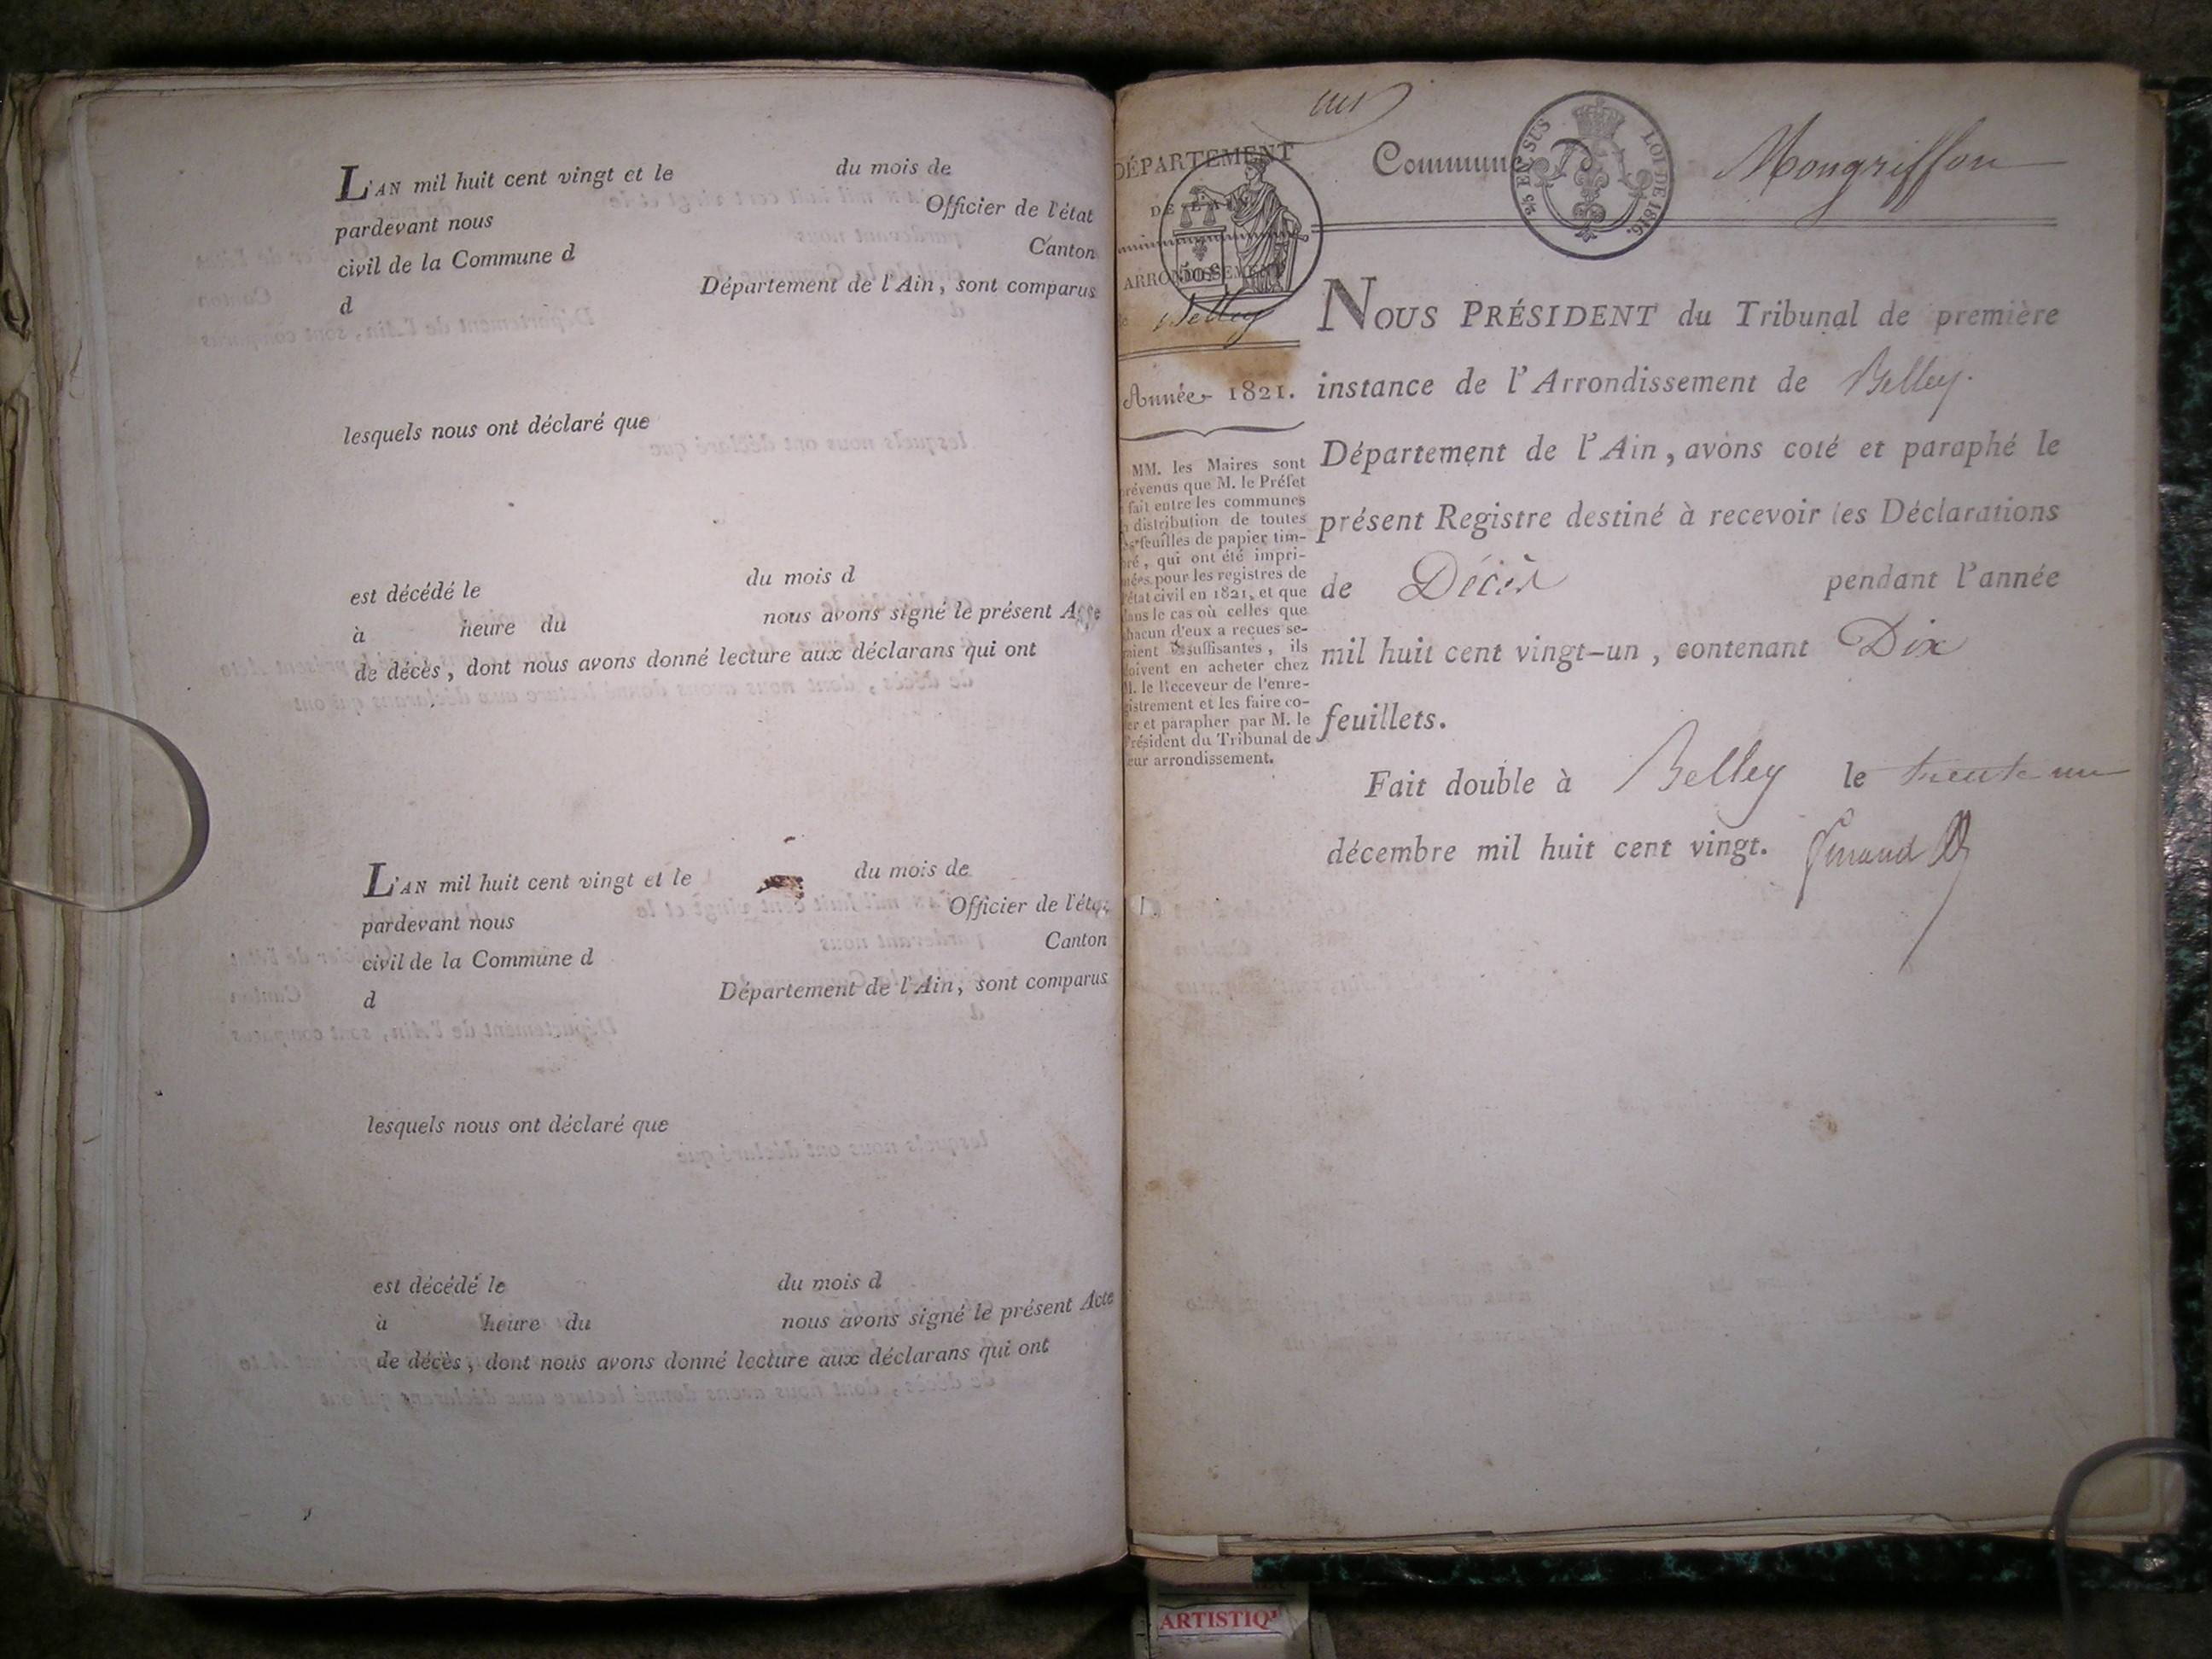 L'AN mil huit cent vingt et le du mois de
pardevant nous Officier de l'état
civil de la Commune d Canton
d Département de l'Ain, sont comparus
lesquels nous ont déclaré que
est décédé le du mois d
à heure du nous avons signé le présent Acte
de décès, dont nous avons donné lecture aux déclarans qui ont
L'AN mil huit cent vingt et le du mois de
pardevant nous Officier de l'état
civil de la Commune d Canton
d Département de l'Ain, sont comparus
lesquels nous ont déclaré que
est décédé le du mois d
à heure du nous avons signé le présent Acte
de décès, dont nous avons donné lecture aux déclarans qui ont
DÉPARTEMENT
DE L'AIN
ARRONDISSEMENT
de Belley
Année 1821.
MM. les Maires sont
prévenus que M. le Préfet
fait entre les communes
la distribution de toutes
les feuilles de papier tim-
bré, qui ont été impri-
mées pour les registres de
l'état civil en 1821, et que
dans le cas où celles que
chacun d'eux a reçues se-
raient insuffisantes, ils
doivent en acheter chez
M. le Receveur de l'enre-
gistrement et les faire co-
ter et parapher par M. le
Président du Tribunal de
leur arrondissement.
Commune De Mongriffon
EN SUS LOI DE 1816.
NOUS PRÉSIDENT du Tribunal de première
instance de l'Arrondissement de Belley.
Département de l'Ain, avons coté et paraphé le
présent Registre destiné à recevoir les Déclarations
de Décès pendant l'année
mil huit cent vingt-un, contenant Dix
feuillets.
Fait double à Belley le trente un
décembre mil huit cent vingt.
ARTISTIQ